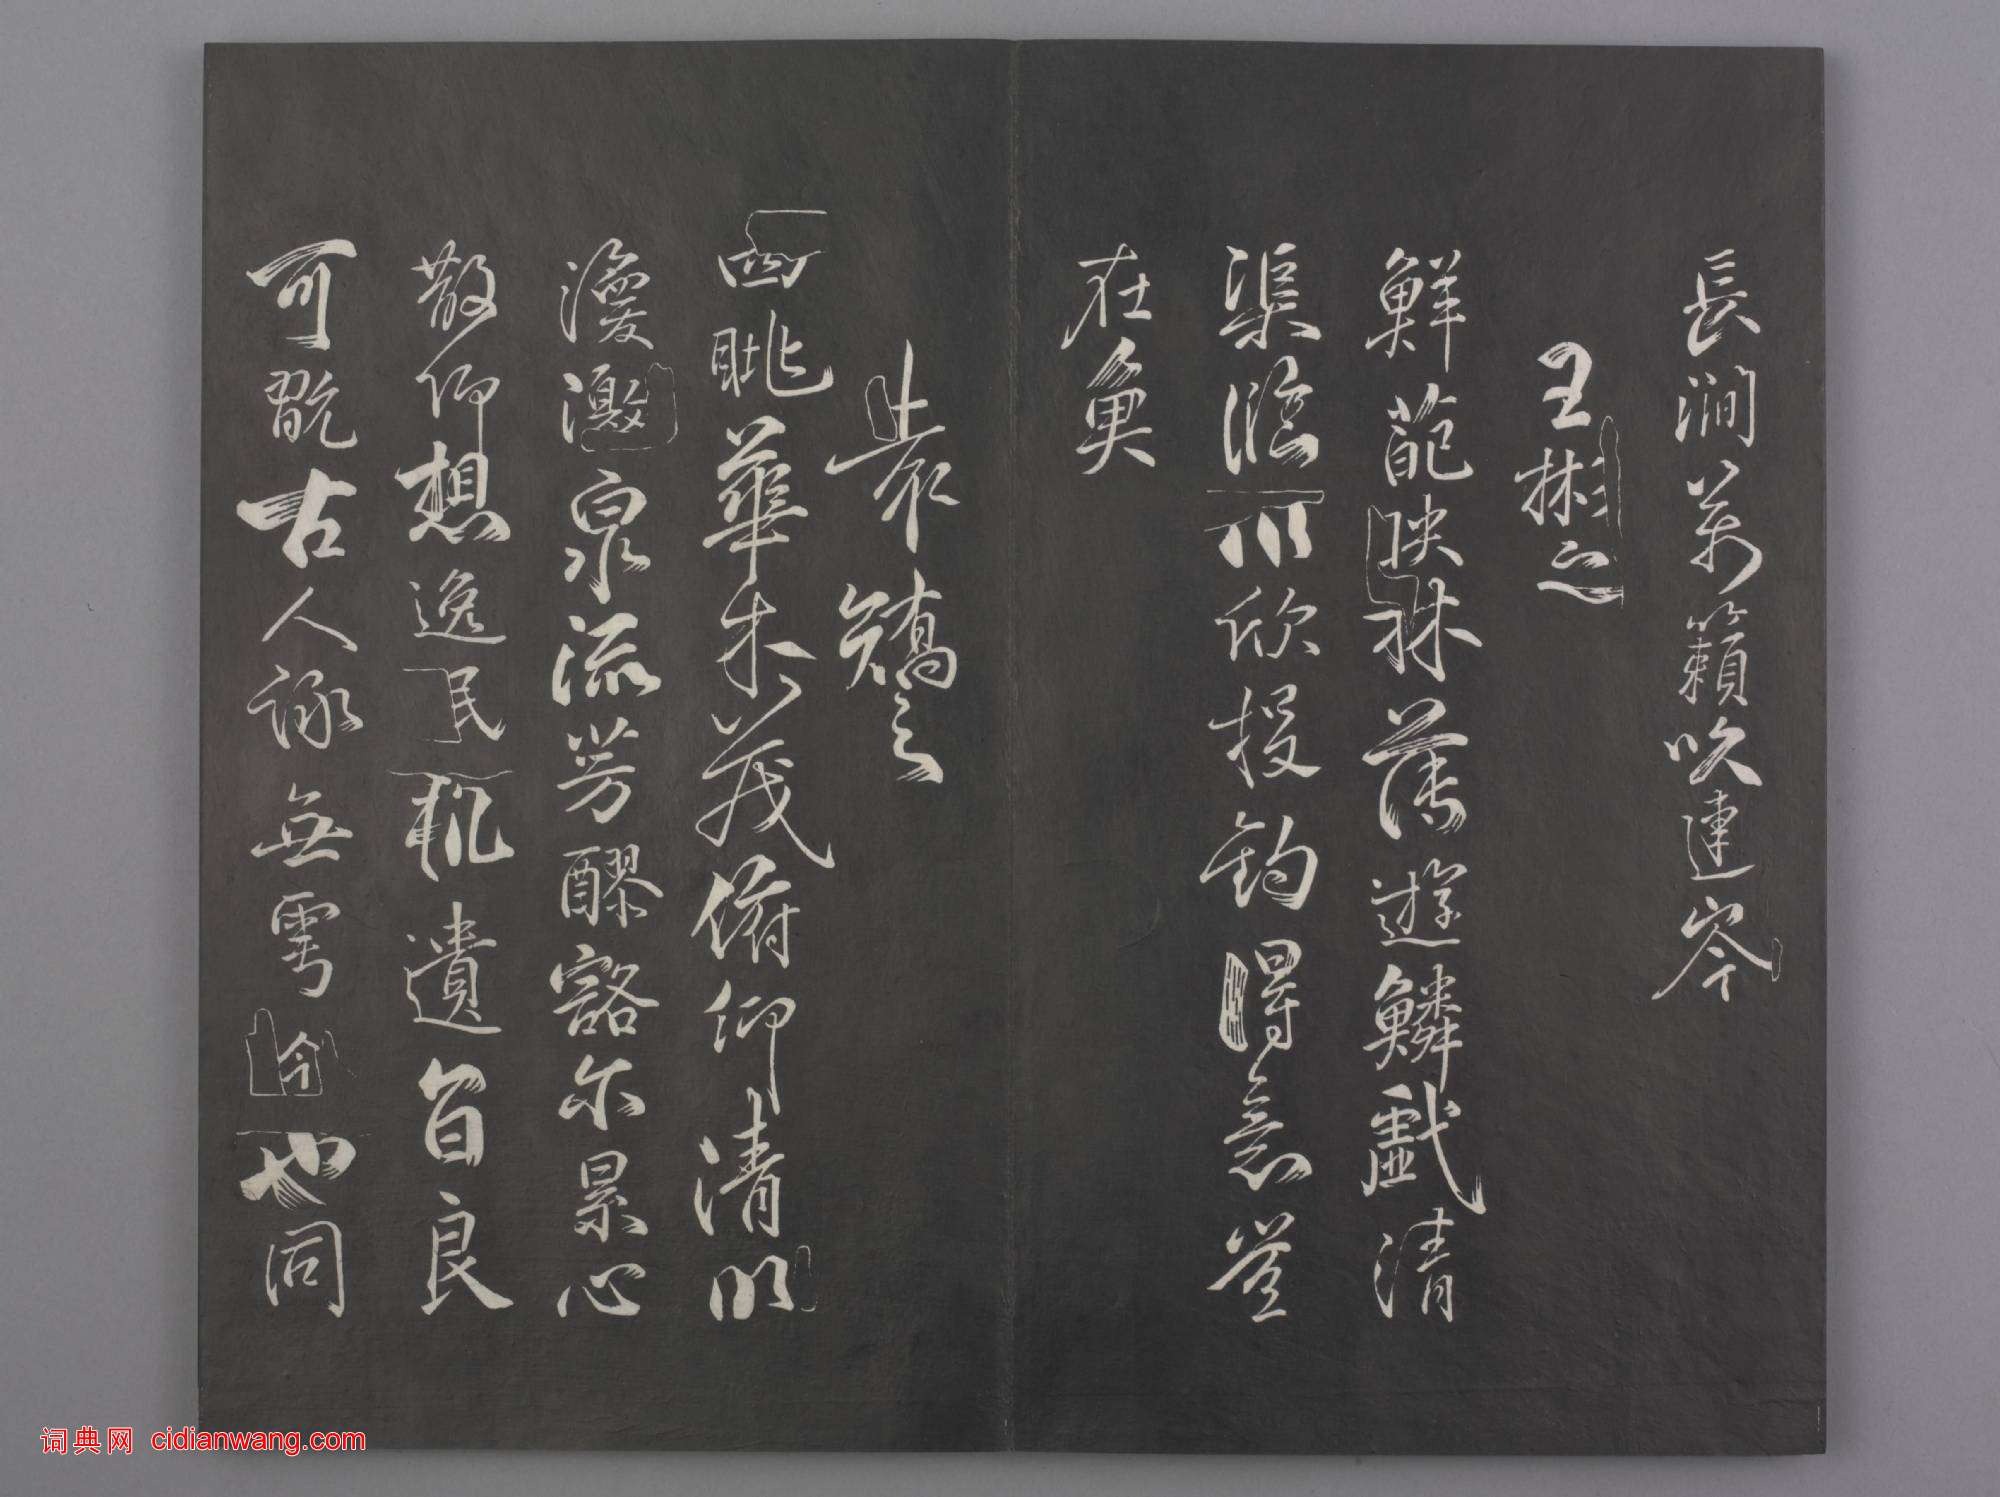 長澗萬籟吹連岑
王彬之
鮮葩映林薄遊鱗戲清
渠臨川欣投釣得意豈
在魚
袁矯之
四眺華木茂俯仰清川
渙激泉流芳醪豁尔累心
散仰想逸民軌遺音良
可翫古人詠無雩今也同
词典网 cidianwang.com